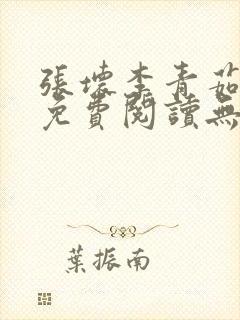 張壞李青茹
免費閱讀無
葉振南